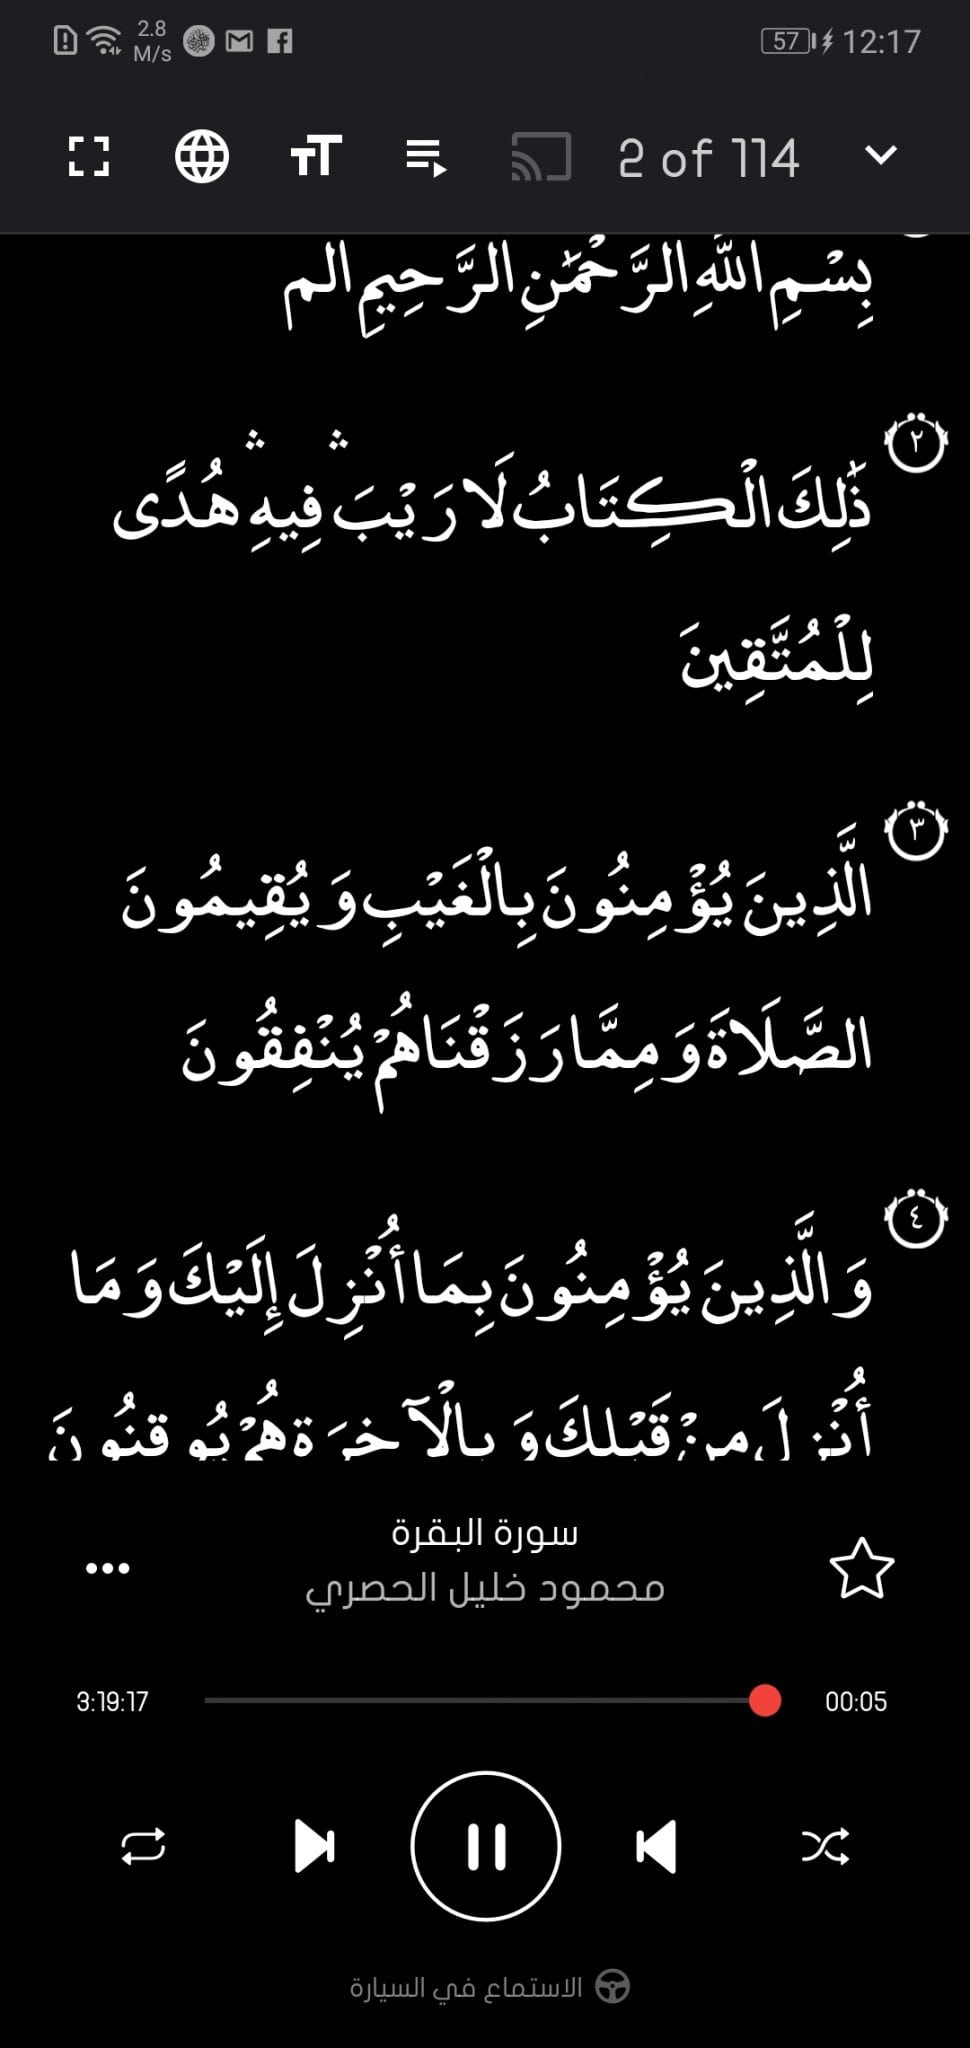 2.8
M/s
57
12:17
2 of 114
بِسْمِ اللَّهِ الرَّحْمَٰنِ الرَّحِيمِ الم
٢
ذَٰلِكَ الْكِتَابُ لَا رَيْبَ ۛ فِيهِ ۛ هُدًى
لِلْمُتَّقِينَ
٣
الَّذِينَ يُؤْمِنُونَ بِالْغَيْبِ وَيُقِيمُونَ
الصَّلَاةَ وَمِمَّا رَزَقْنَاهُمْ يُنْفِقُونَ
٤
وَالَّذِينَ يُؤْمِنُونَ بِمَا أُنْزِلَ إِلَيْكَ وَمَا
أُنْزِلَ مِنْ قَبْلِكَ وَبِالْآخِرَةِ هُمْ يُوقِنُونَ
سورة البقرة
محمود خليل الحصري
3:19:17
00:05
الاستماع في السيارة